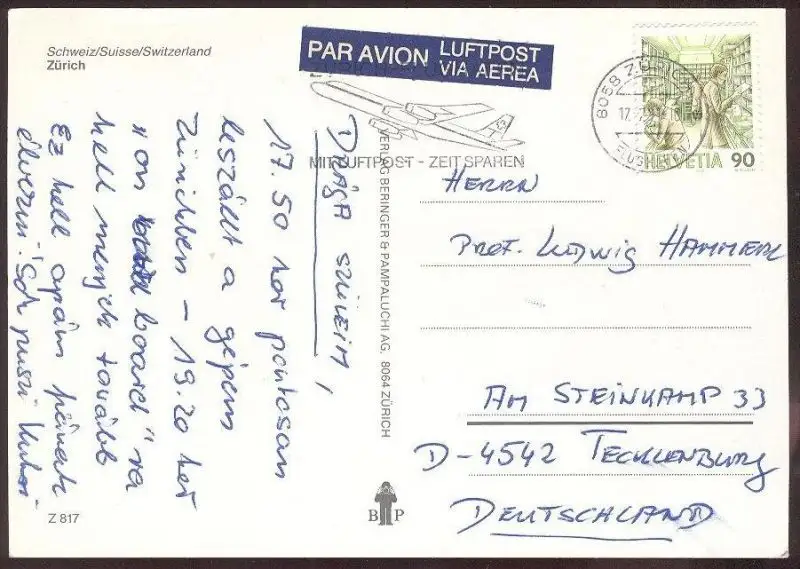 Schweiz/Suisse/Switzerland
Zürich
PAR AVION LUFTPOST
VIA AEREA
MIT LUFTPOST - ZEIT SPAREN
8058 ZÜ
17.
FLUGHAFEN
HELVETIA 90
DRÁGA SZÜLEIM,
17.50 kor pontosan
leszállt a gépem
Zürichben – 19.20 kor
"on board" ra
kell menjek tovább
Ez kell apám
elvezni! Sok puszi
VERLAG BERINGER & PAMPALUCHI AG, 8064 ZÜRICH
HERRN
PROF. LUDWIG HAMMERL
AM STEINKAMP 33
D-4542 TECKLENBURG
DEUTSCHLAND
Z 817
B P